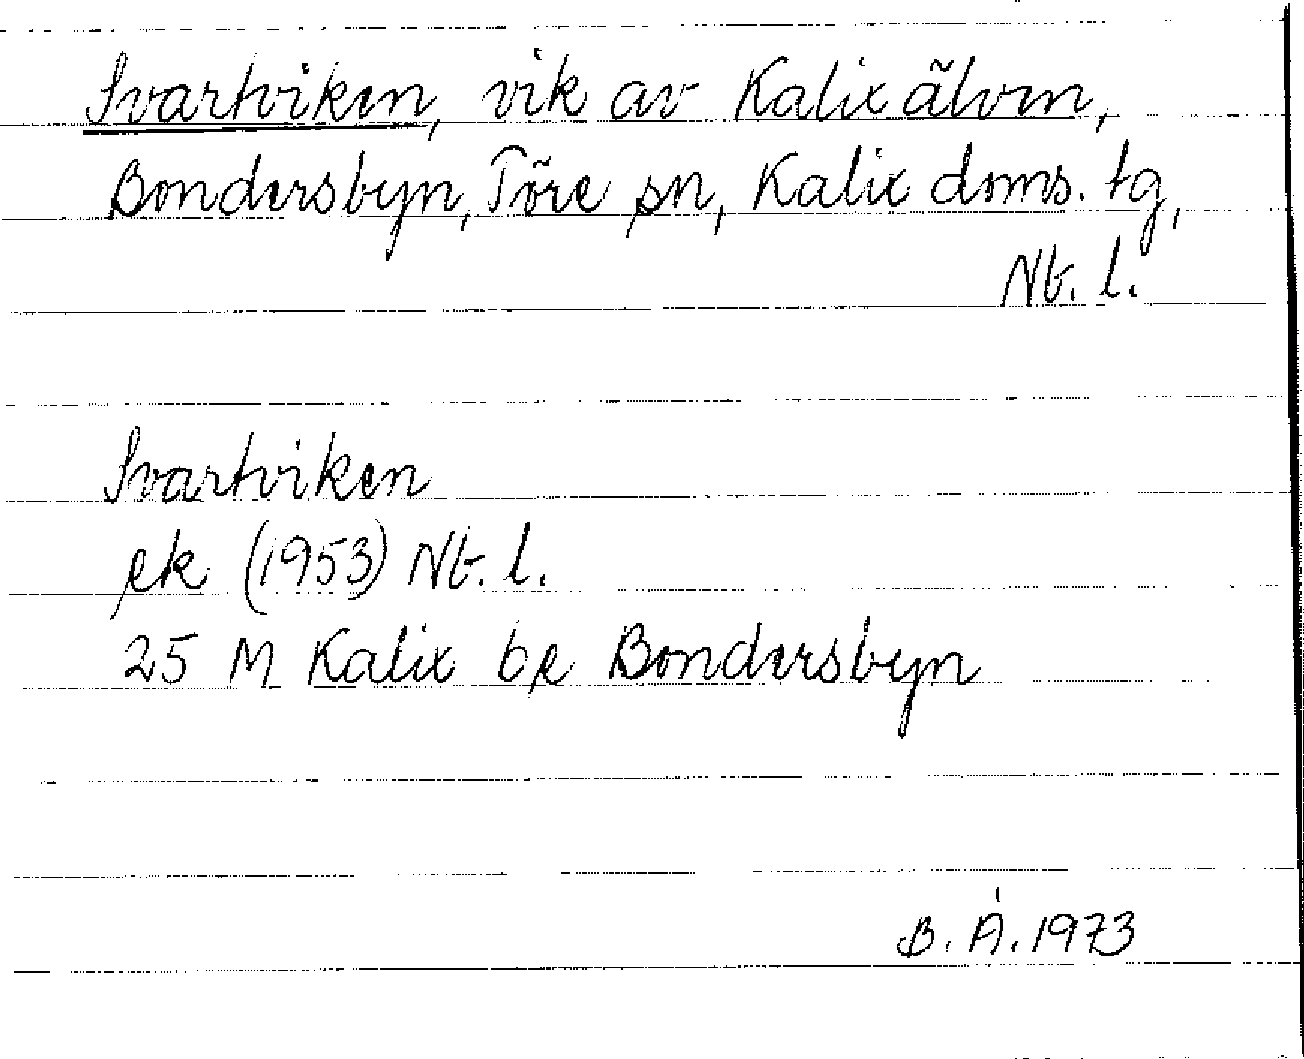 Svartviken, vik av Kalixälven,
Bondersbyn, Töre sn, Kalix doms. tg,
Nb. l.
Svartviken
ek (1953) Nb. l.
25 M Kalix be Bondersbyn
B. Å. 1973